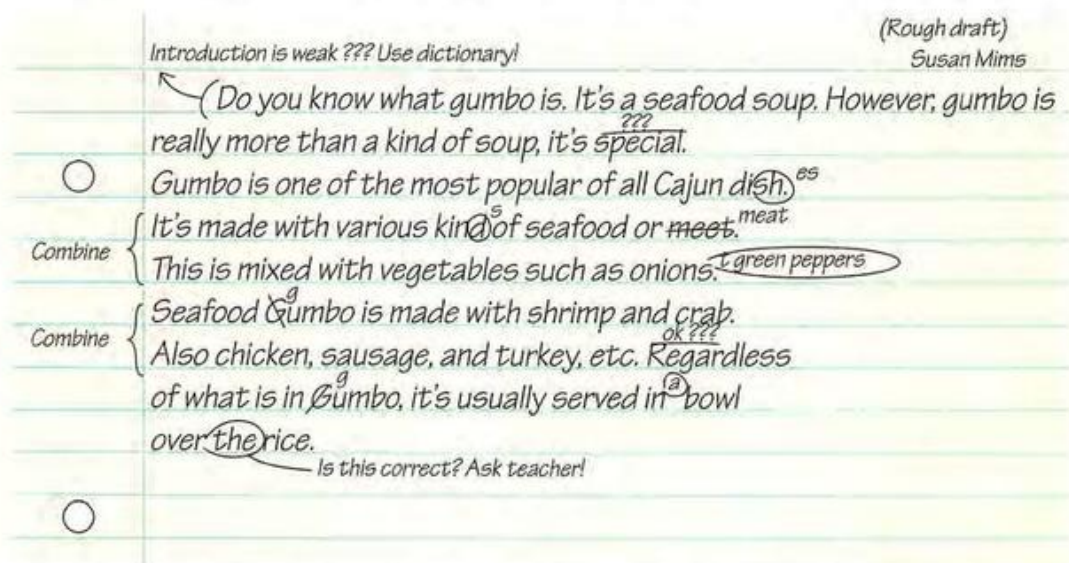 (Rough draft)
Introduction is weak ??? Use dictionary!
Susan Mims
(Do you know what gumbo is. It's a seafood soup. However, gumbo is
???
really more than a kind of soup, it's special.
Gumbo is one of the most popular of all Cajun dish. es
Combine
It's made with various kind s of seafood or meet. meat
This is mixed with vegetables such as onions. t green peppers
Combine
g
Seafood Gumbo is made with shrimp and crab.
ok ???
Also chicken, sausage, and turkey, etc. Regardless
g
of what is in Gumbo, it's usually served in a bowl
over the rice.
Is this correct? Ask teacher!